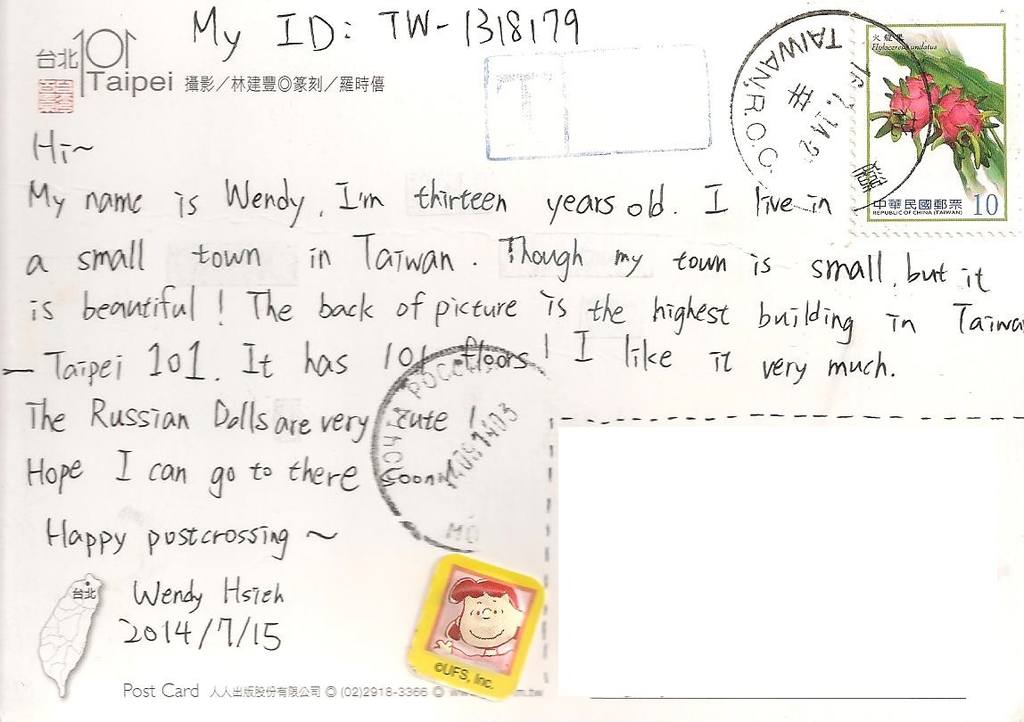 My ID: TW-1318179
台北101
Taipei 攝影/林建豐◎篆刻/羅時僖
T
TAIWAN, R.O.C.
TAIWAN
火龍果
Hylocereus undatus
中華民國郵票
REPUBLIC OF CHINA (TAIWAN) 10
Hi~
My name is Wendy, I'm thirteen years old. I live in
a small town in Taiwan. Though my town is small, but it
is beautiful! The back of picture is the highest building in Taiwa
– Taipei 101. It has 101 floors! I like it very much.
The Russian Dolls are very cute!
Hope I can go to there soon
Happy postcrossing ~
Wendy Hsieh
2014/7/15
台北
©UFS, Inc.
Post Card 人人出版股份有限公司 ◎ (02)2918-3366 ◎